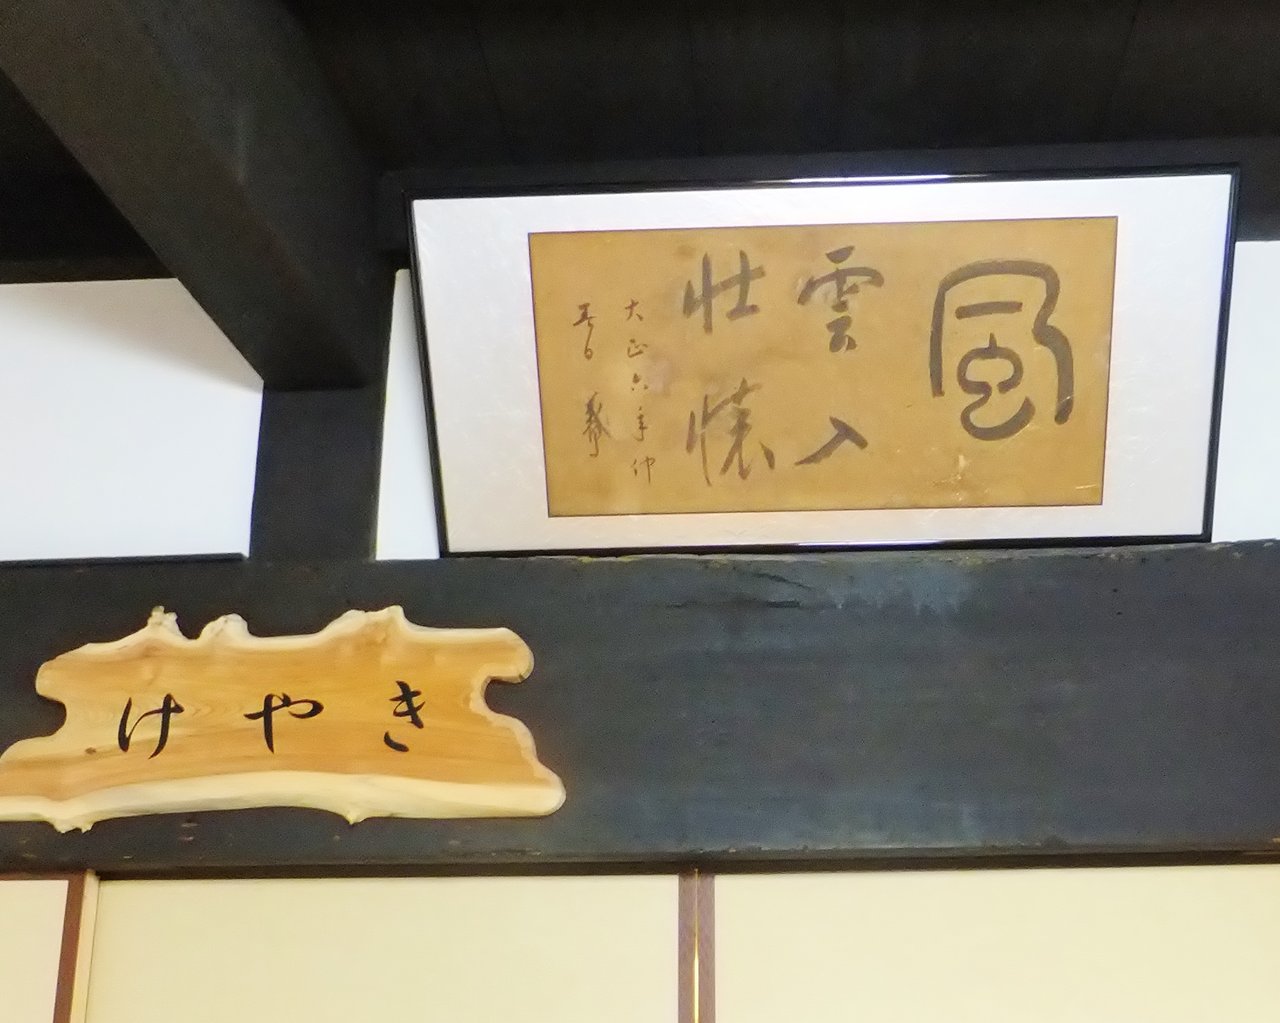 風
雲入
壮懐
大正六年仲
春日
きやけ